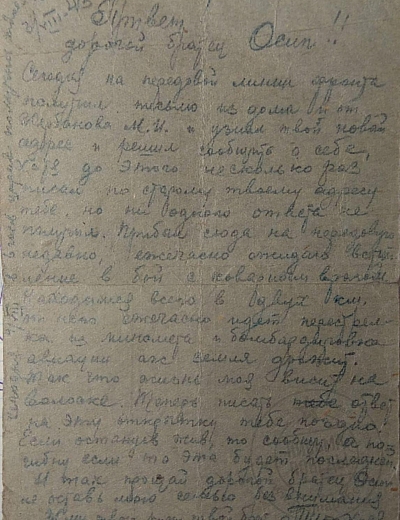 4/VIII.43
Привет
дорогой братец Осип!!
Сегодня на передовой линии фронта
получил письмо из дома и от
М.И. и узнал твой новый
адрес и решил сообщить о себе,
хотя до этого несколько раз
писал по старому твоему адресу
тебе, но ни одного ответа не
получил. Прибыл сюда на передовую
недавно, ежечасно ожидаю вступ-
ление в бой с коварным врагом.
Находимся всего в двух км.
от него ежечасно идет перестрел-
ка из миномета и бомбардировка
авиации аж земля дрожит.
Так что жизнь моя висит на
волоске. Теперь писать ответ
на эту открытку тебе
Если останусь жив, то сообщу, а по-
гибну если то эта будет последней
И так прощай дорогой братец Осип
не оставь мою семью без внимания